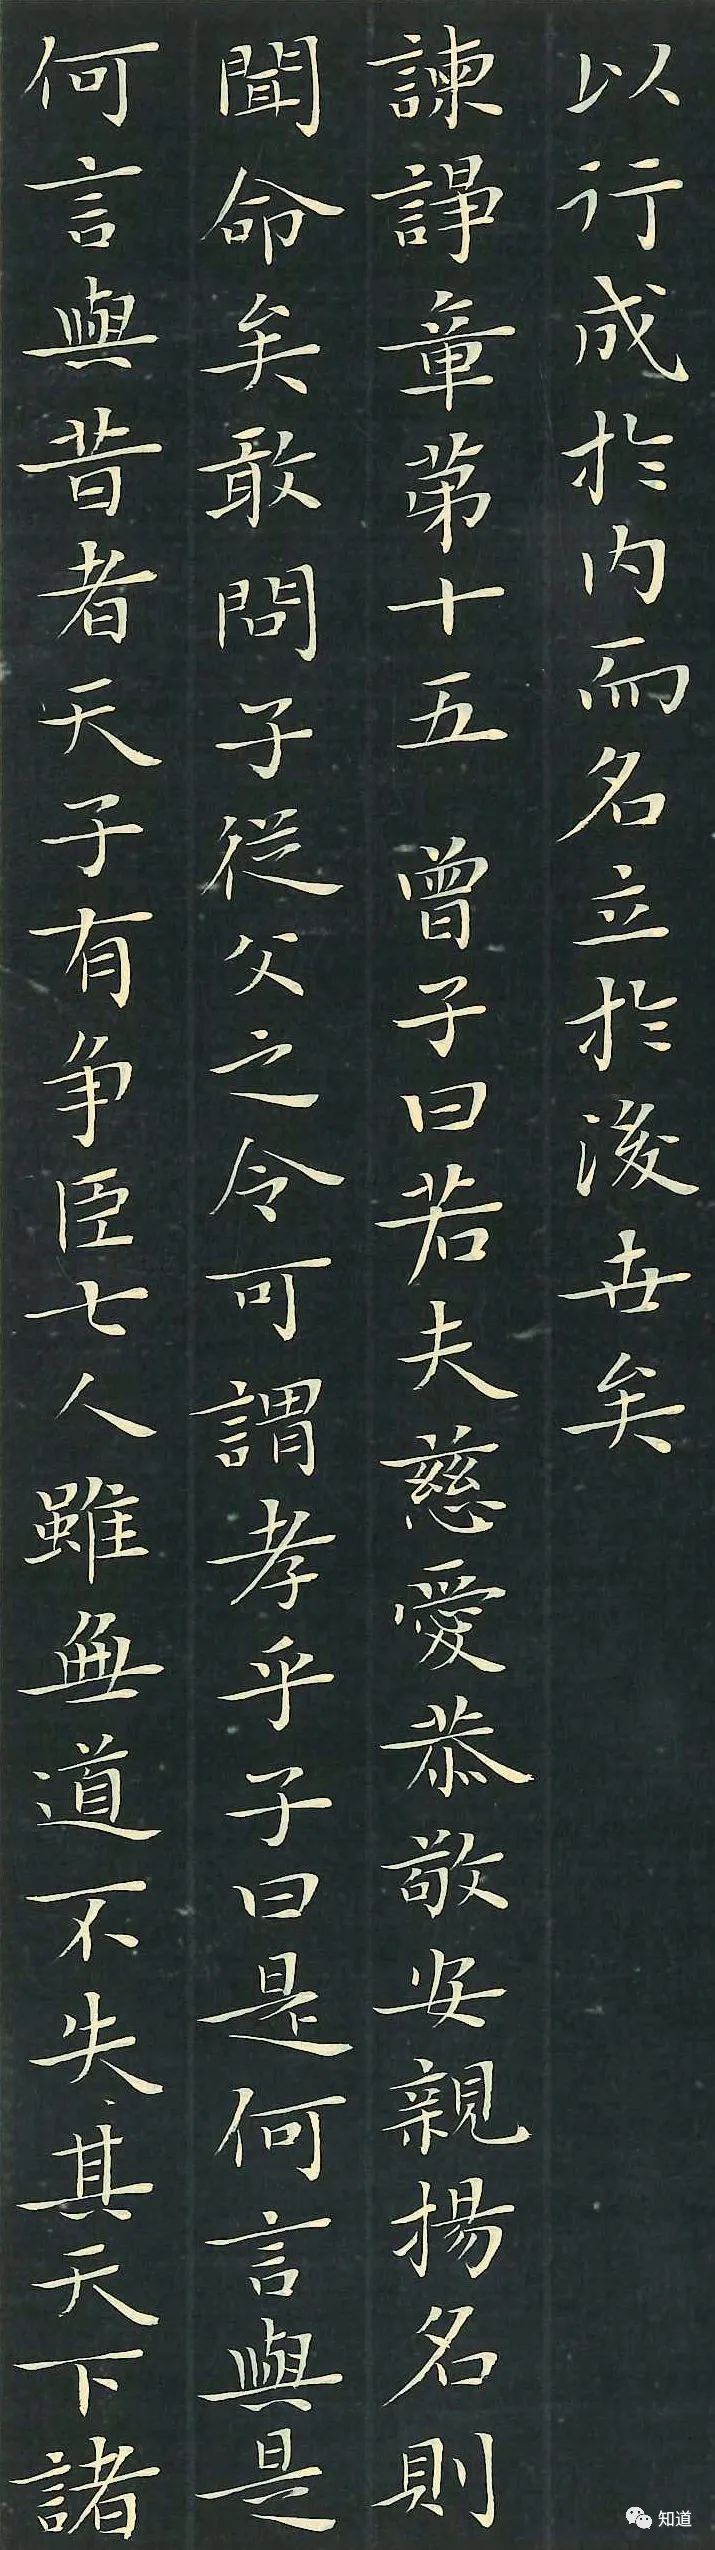 以行成於内而名立於後世矣
諫諍章第十五 曾子曰若夫慈愛恭敬安親揚名則
聞命矣敢問子從父之令可謂孝乎子曰是何言與是
何言與昔者天子有争臣七人雖無道不失其天下諸
知道